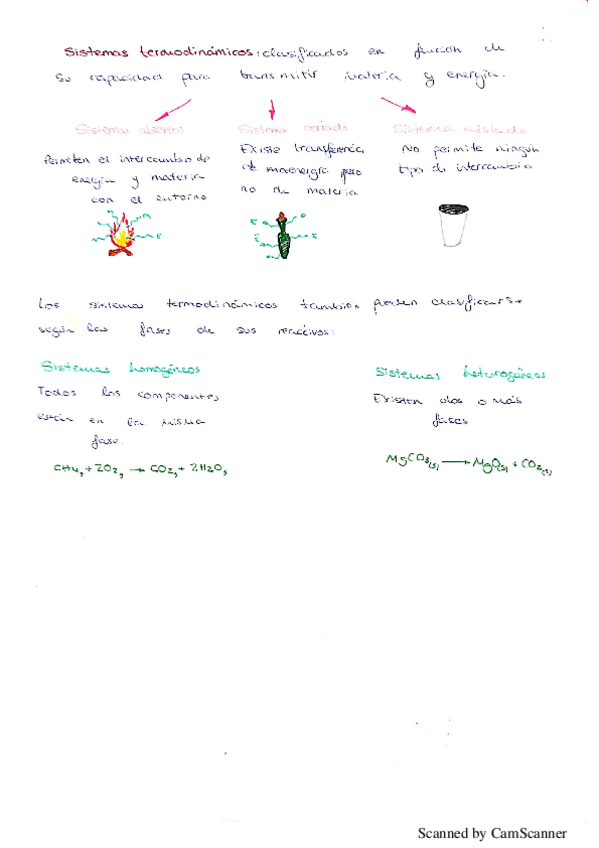 Sistemas termodinámicos: clasificados en función de
su capacidad para transmitir materia y energía.
Sistemas abiertos
Permiten el intercambio de
energía y materia
con el entorno
M
E
Sistema cerrado
Existe transferencia
de energía pero
no de materia
E
E
E
Sistema aislado
No permite ningún
tipo de intercambio
Los sistemas termodinámicos también pueden clasificarse
según las fases de sus reactivos:
Sistemas homogéneos
Todos los componentes
están en la misma
fase.
CH4g + 2O2g → CO2g + 2H2Og
Sistemas heterogéneos
Existen dos o más
fases
MgCO3(s) → MgO(s) + CO2(g)
Scanned by CamScanner